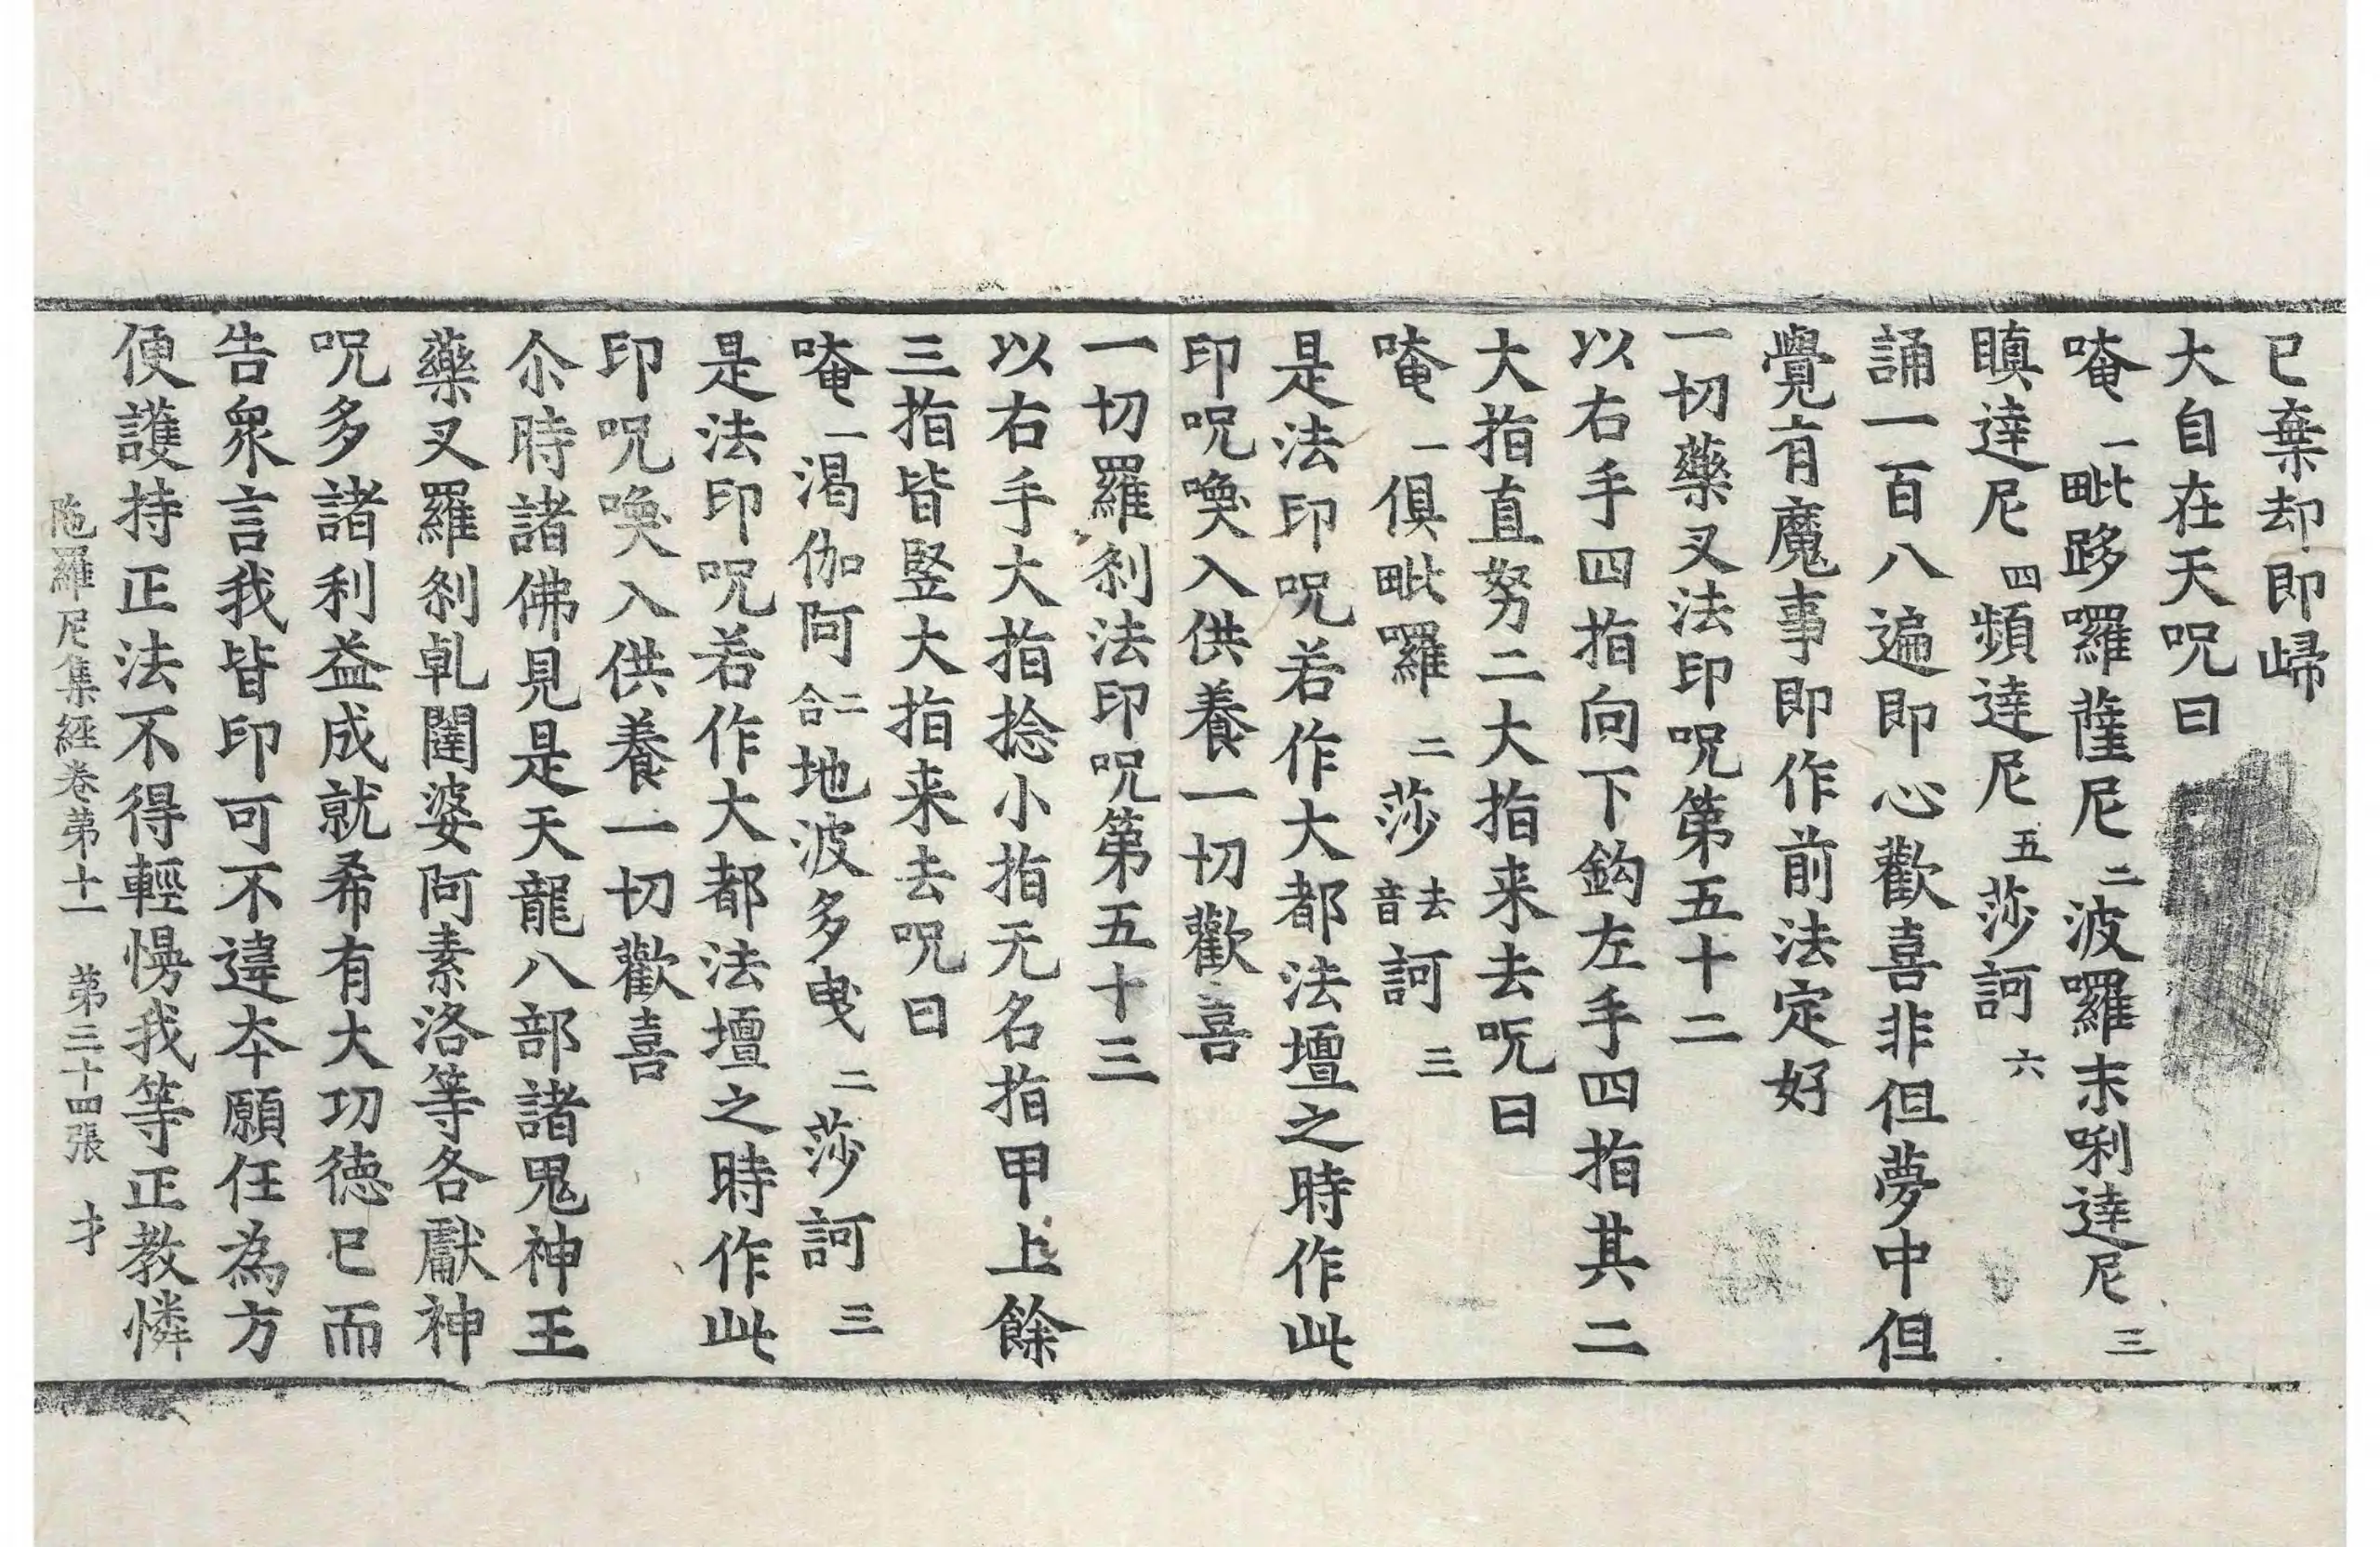 已棄却即歸
大自在天呪曰
唵一毗跢囉薩尼二波囉末唎達尼三
瞋達尼四頻達尼五莎訶六
誦一百八遍即心歡喜非但夢中但
覺有魔事即作前法定好
一切藥叉法印呪第五十二
以右手四指向下鈎左手四指其二
大指直努二大指来去呪曰
唵一俱毗囉二莎去音訶三
是法印呪若作大都法壇之時作此
印呪喚入供養一切歡喜
一切羅刹法印呪第五十三
以右手大指捻小指无名指甲上餘
三指皆竪大指来去呪曰
唵一渴伽阿二合地波多曳二莎訶三
是法印呪若作大都法壇之時作此
印呪喚入供養一切歡喜
尒時諸佛見是天龍八部諸鬼神王
藥叉羅刹乹闥婆阿素洛等各獻神
呪多諸利益成就希有大功德已而
告衆言我皆印可不違夲願任為方
便護持正法不得輕慢我等正教憐
陁羅尼集經卷第十一　第三十四張　才